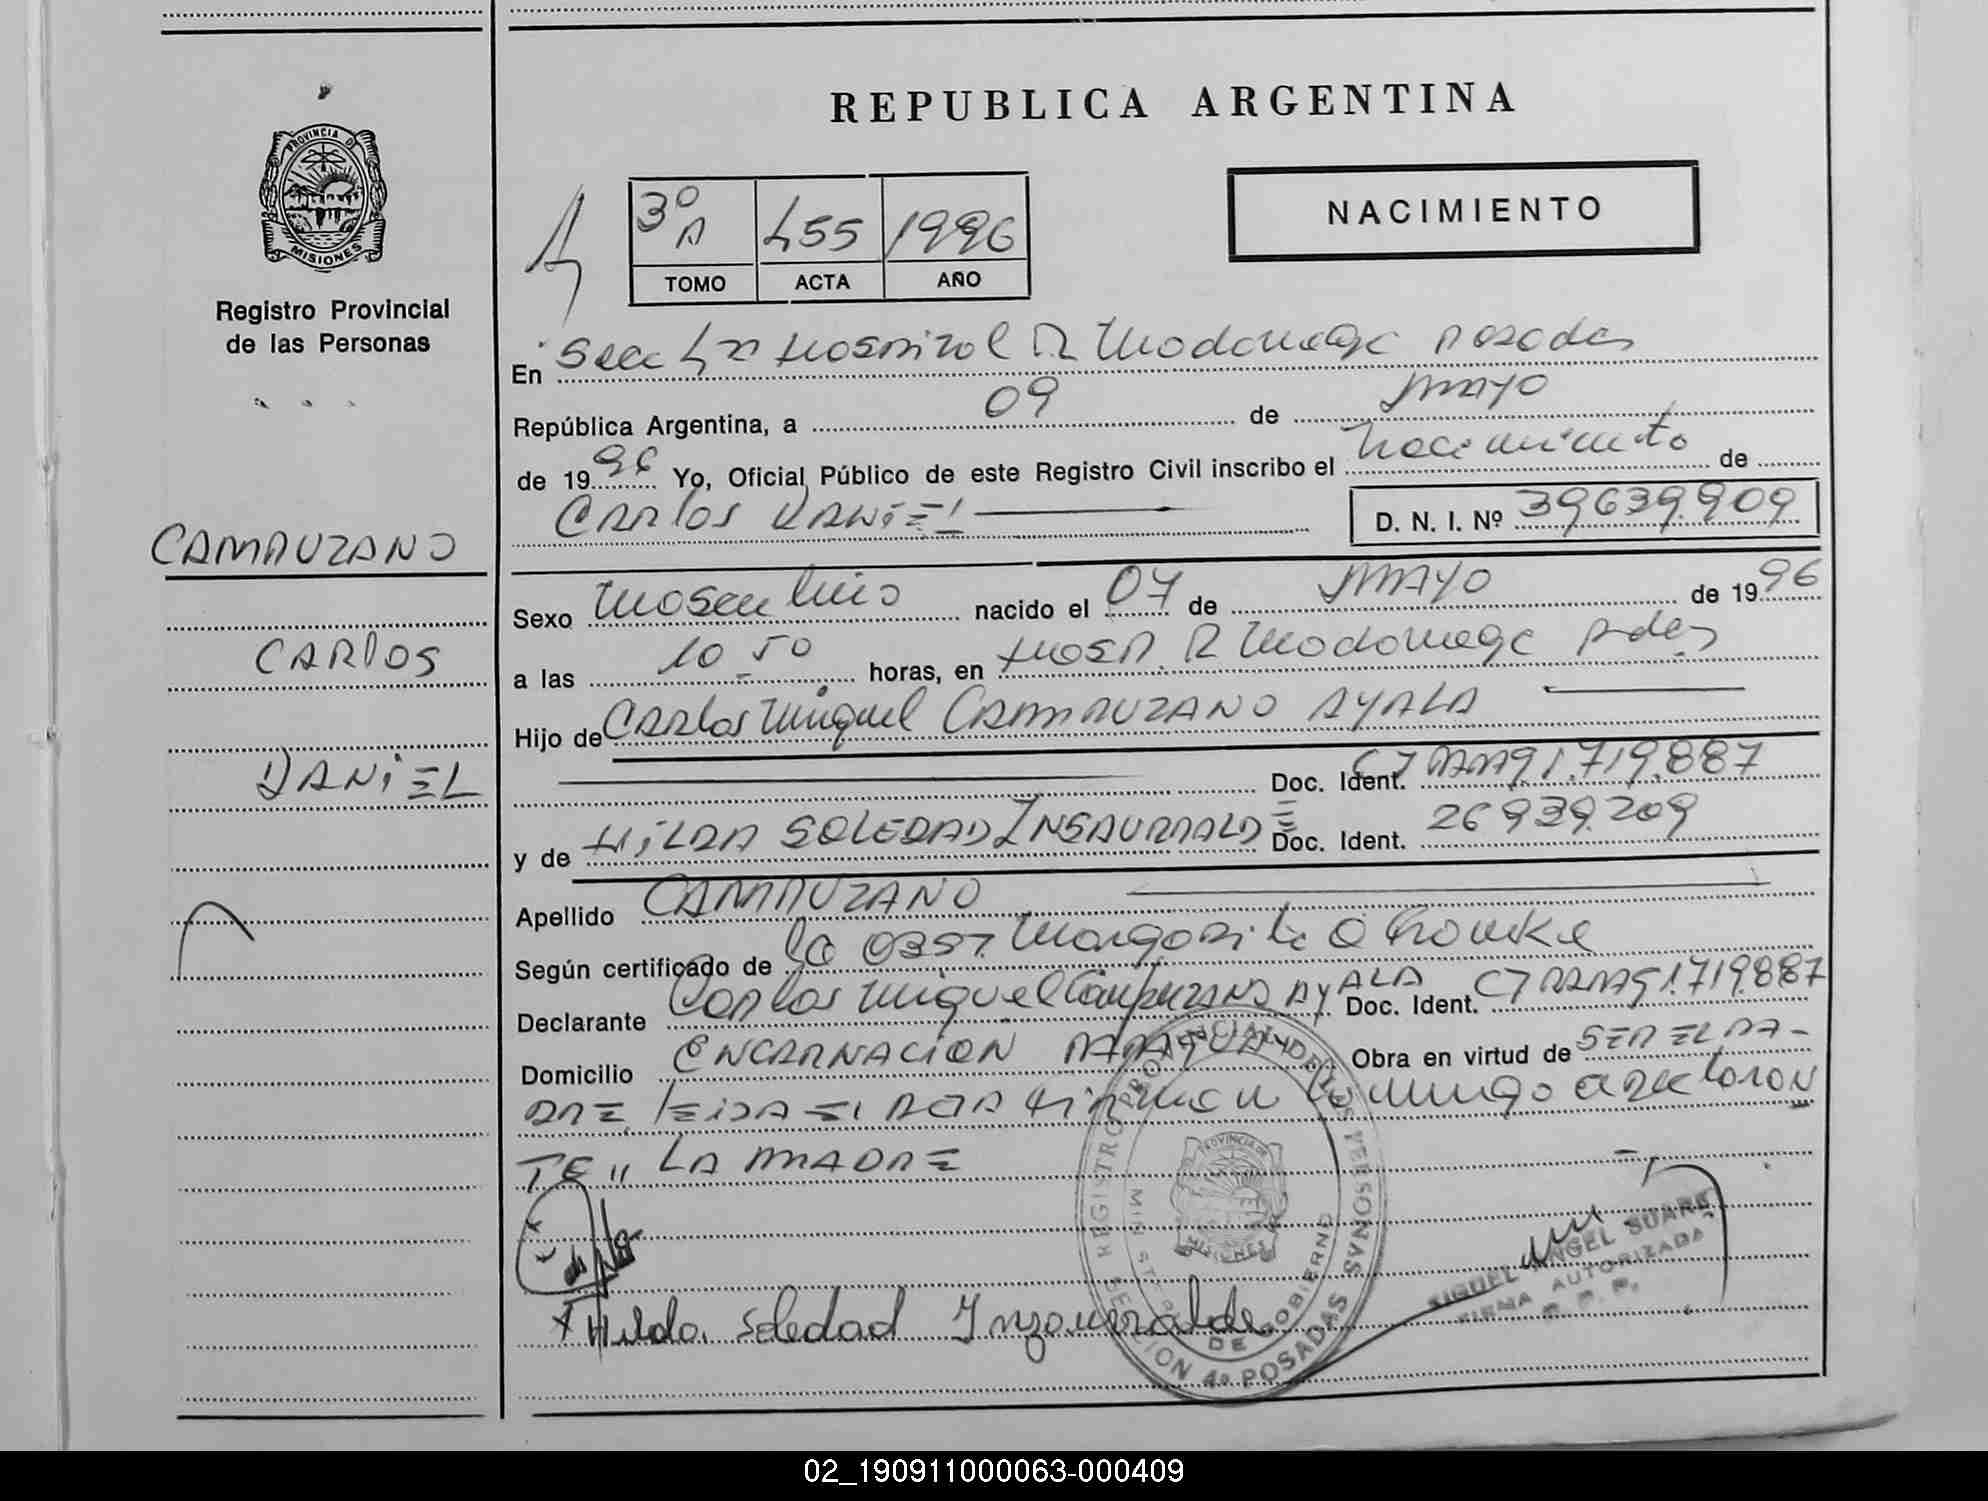 REPUBLICA ARGENTINA
PROVINCIA DE
MISIONES
Registro Provincial
de las Personas
NACIMIENTO
3º A 455 1996
TOMO ACTA AÑO
En Secc 4ª Hospital R Madariaga Posadas
República Argentina, a 09 de mayo
de 1996 Yo, Oficial Público de este Registro Civil inscribo el nacimiento de
CARlos DANiEl
D. N. I. Nº 39639.909
CAMPUZANO
CARlOS
DANiEL
Sexo masculino nacido el 07 de MAYO de 1996
a las 10 50 horas, en Hosp. R Madariaga Pdas
Hijo de CARlos Miguel CAMPUZANO AYALA
Doc. Ident. CI 1.719.887
y de HiLDA SOLEDAD INSAURRALDE Doc. Ident. 26939.209
Apellido CAMPUZANO
Según certificado de la Obst. Margarita
Declarante Carlos Miguel Campuzano AYALA Doc. Ident. CI 1.719.887
Domicilio ENCARNACiON PARAGUAY Obra en virtud de SER EL PA-
DRE lEiDA El ACTA firman conmigo el declaran
TE" LA MADRE
Hilda Soledad Inzaurralde
REGISTRO PROVINCIAL DE LAS PERSONAS
SECCION 4ª POSADAS
MINISTERIO DE GOBIERNO
PROVINCIA DE
MISIONES
MIGUEL ANGEL SUAREZ
FIRMA AUTORIZADA
R. P. P.
02_190911000063-000409